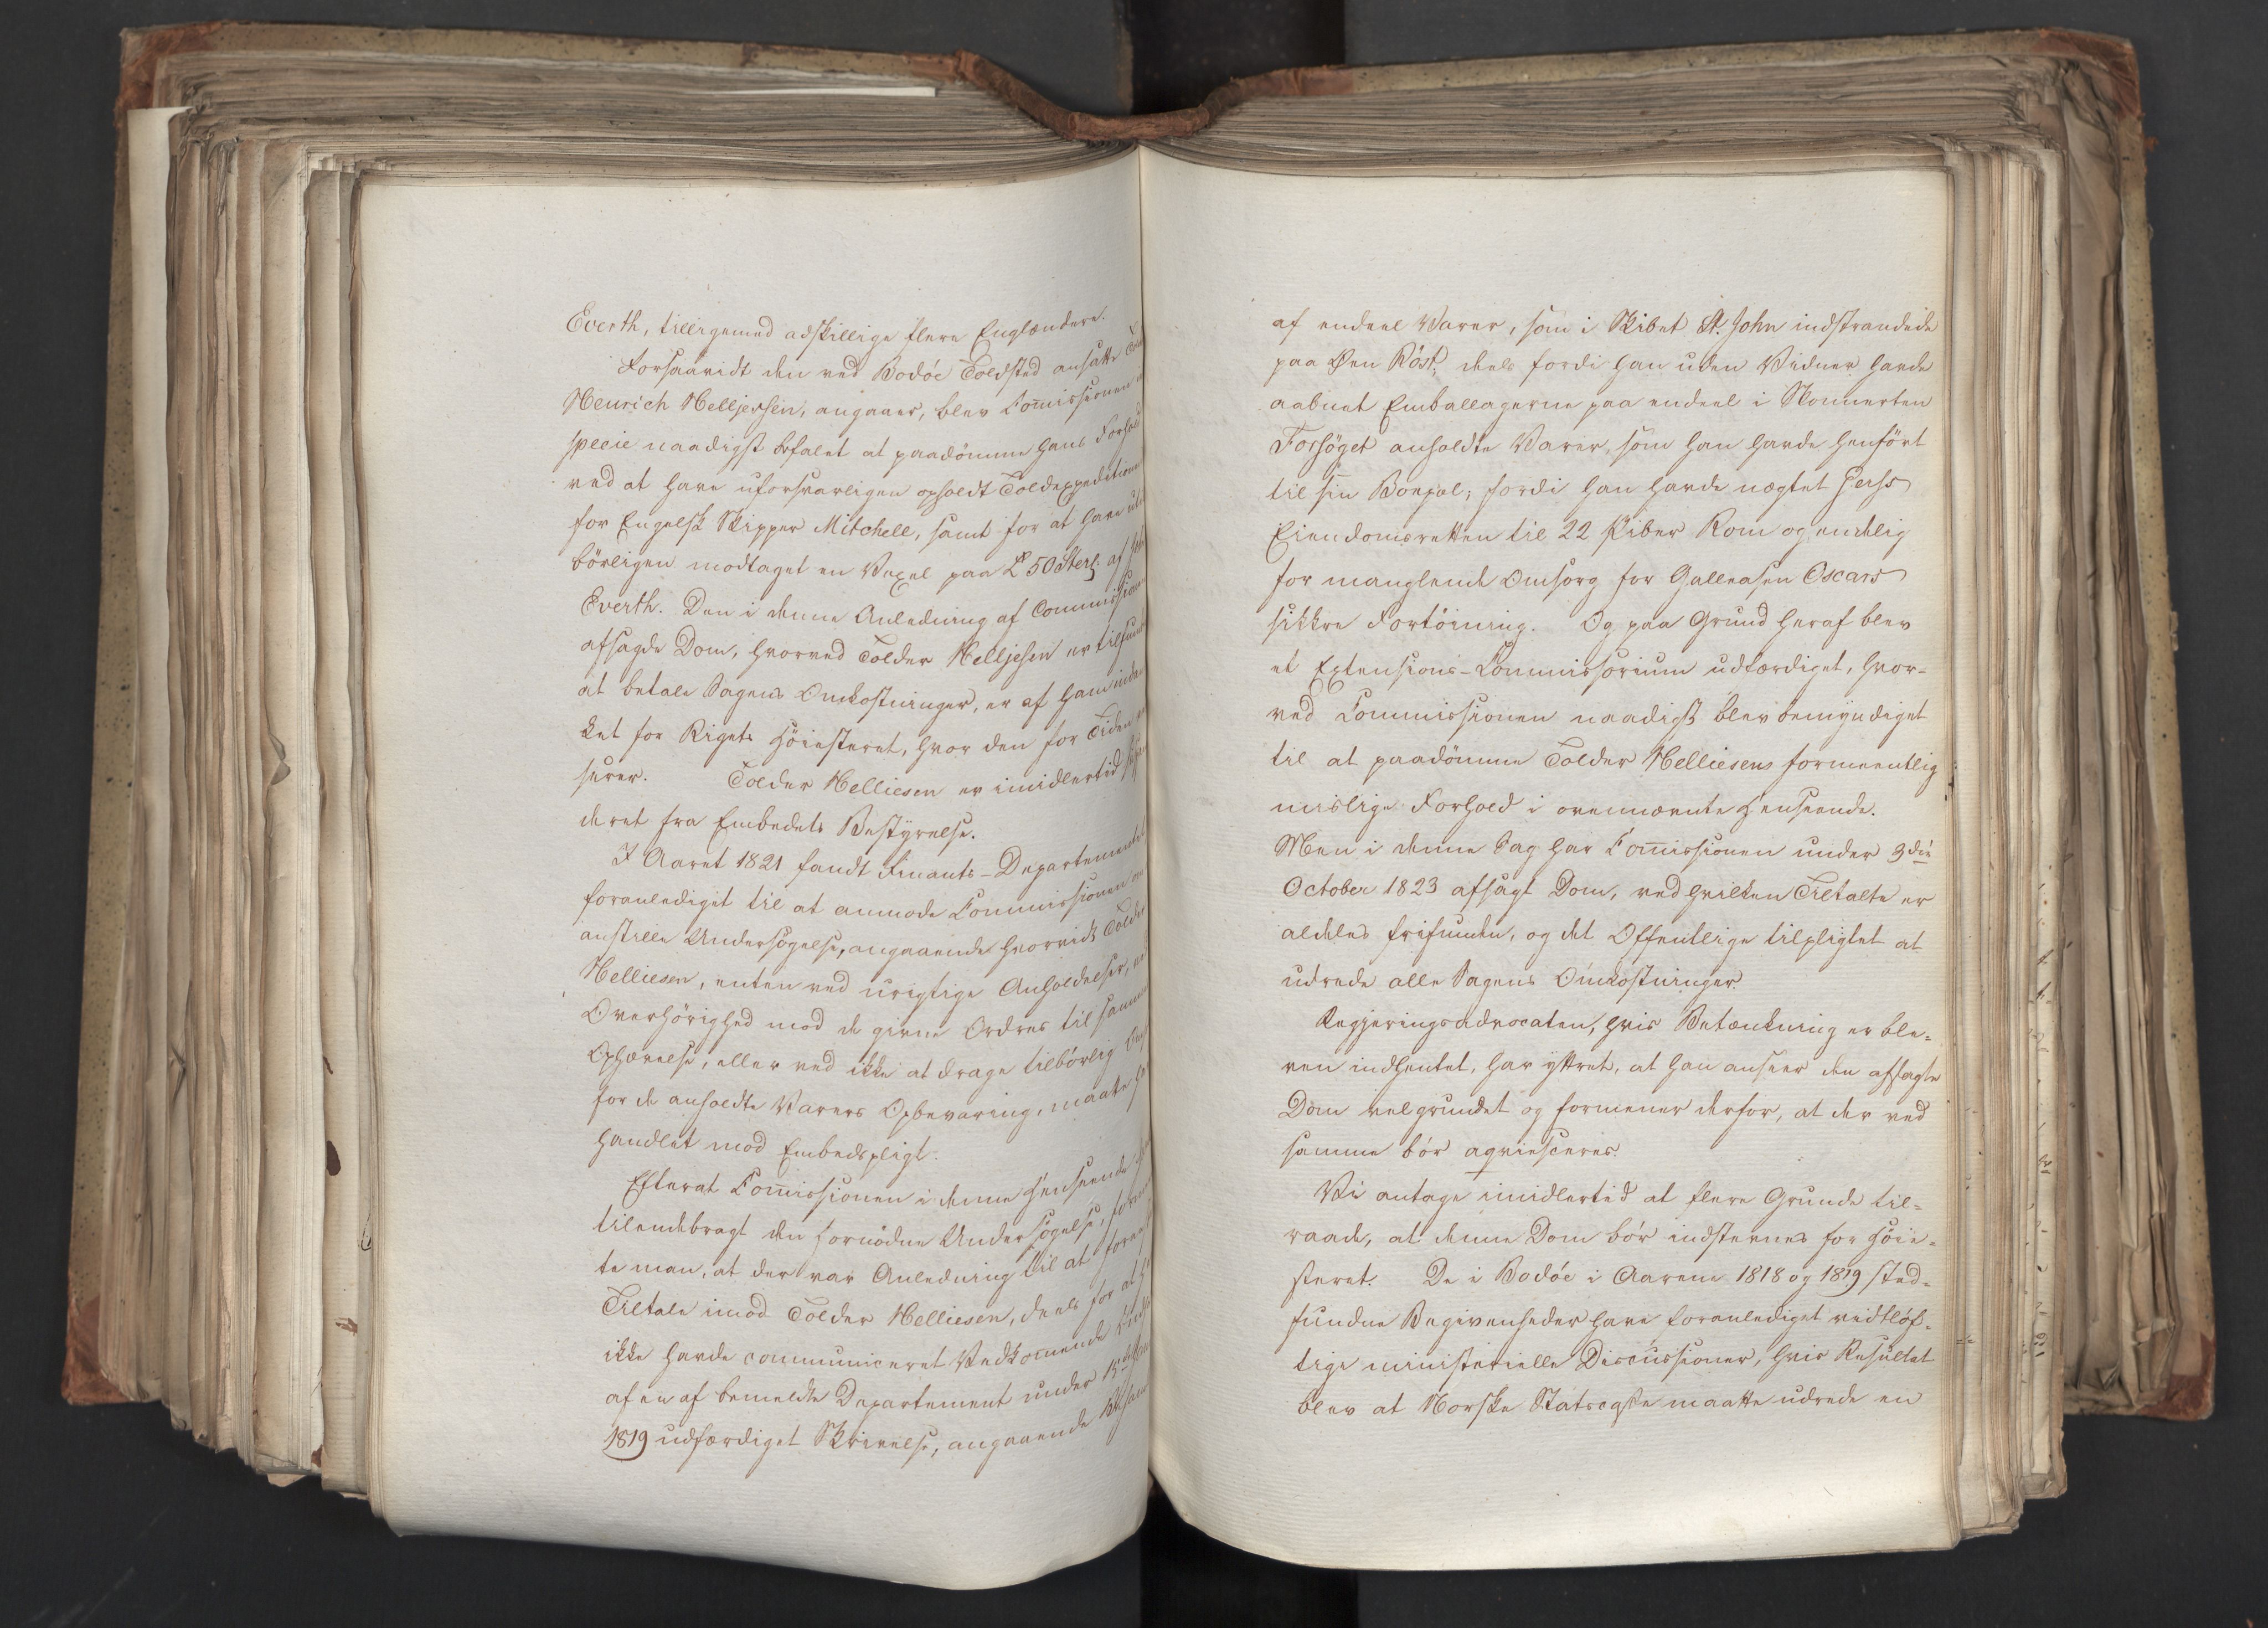 Everth, tilligemed adskillige flere Englændere.
Forsaavidt den ved Bodöe Toldsted ansatte
Henrich Helljessen, angaaer, blev Com̅issionen
specie naadigst befalet at paadömme hans Forhold
ved at have uforsvarligen opholdt Toldexpeditionen
for Engelsk Skipper Mitchell, samt for at have
börligen modtaget en Vexel paa £ 50 Sterl: af John
Everth. Den i denne Anledning af Commissionen
afsagde Dom, hvorved Tolder Helljesen er tilfunden
at betale Sagens Omkostninger, er af ham
ket for Rigets Höiesteret, hvor den for Tiden
serer. Tolder Helliesen er imidlertid
deret fra Embedets Bestÿrelse.
I Aaret 1821 fandt Finants-Departementet
foranlediget til at anmode Commissionen om
anstille Undersögelse, angaaende hvorvidt Tolder
Helliesen, enten ved urigtige Anholdelser, ved
Overhörighed mod de givne Ordres til sammes
Ophævelse, eller ved ikke at drage tilbörlig
for de anholdte Varers Opbevaring, maatte have
handlet mod Embedspligt.
Efterat Com̅issionen i denne Henseende
tilendebragt den fornödne Undersögelse,
te man, at der var Anledning til at
Tiltale imod Tolder Helliesen, deels for at han
ikke havde communiceret Vedkommende
af en af bemeldte Departement under 15de
1819 udfærdiget Skrivelse, angaaende
af endeel Varer, som i Skibet St. John indstrandede
paa Öen Röst, deels fordi han uden Vidner havde
aabnet Emballagerne paa endeel i Skonnerten
Forsöget anholdte Varer, som han havde henfört
til sin Boepæl; fordi han havde nægtet Jerss
Eiendomsretten til 22 Piber Rom og endelig
for manglende Omsorg for Galleasen Oscars
sikkre Fortöining. Og paa Grund heraf blev
et Extensions-Commissorium udfærdiget, hvor-
ved Commissionen naadigst blev bemÿndiget
til at paadömme Tolder Helliesens formeentlig
mislige Forhold i ovennævnte Henseende.
Men i denne Sag har Com̅issionen under 3die
October 1823 afsagt Dom, ved hvilken Tiltalte er
aldeles frifunden, og det Offentlige tilpligtet at
udrede alle Sagens Omkostninger.
Regjeringsadvocaten, hvis Betænkning er ble-
ven indhentet, har ÿttret, at han anseer den afsagte
Dom velgrundet og formener derfor, at der ved
samme bör aqviesceres.
Vi antage imidlertid at flere Grunde til-
raade, at denne Dom bör indstevnes for Höie-
steret. De i Bodöe i Aarene 1818 og 1819 sted-
fundne Begivenheder have foranlediget vidtlöf-
tige ministerielle Discussioner, hvis Resultat
blev at Norske Statscasse maatte udrede en